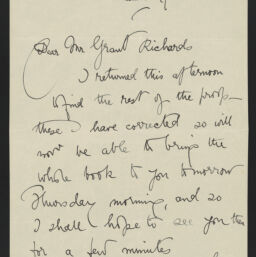 Dear Mr Grant Richards
I returned this afternoon
to find the rest of the proofs
these I have corrected so will
now be able to bring the
whole book to you tomorrow
Thursday morning, and so
I shall hope to see you then
for a few minutes